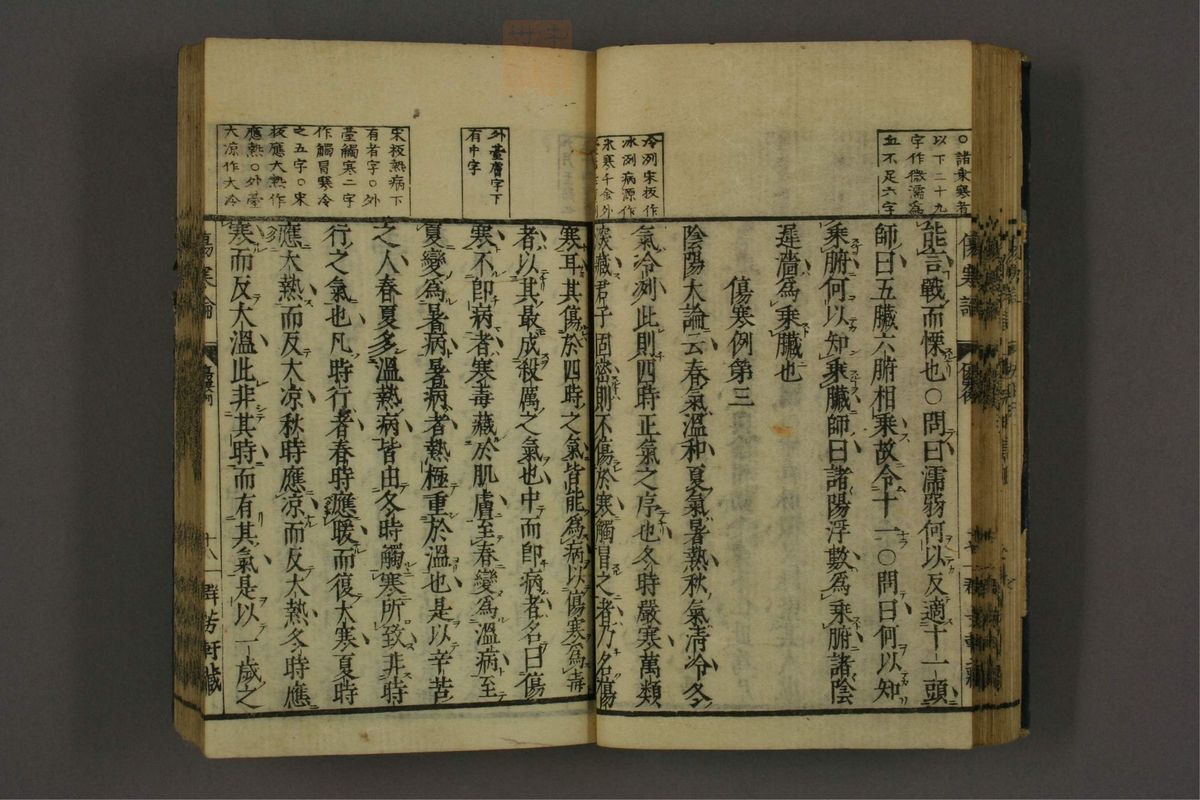 ○諸乘寒者
以下二十九
字作微濡為
血不足六字
能言戰而慄也○問曰濡弱何以反適十一頭
師曰五臟六腑相乘故令十一○問曰何以知
乘腑何以知乘臟師曰諸陽浮數為乘腑諸陰
遲濇為乘臟也
傷寒例第三
陰陽大論云春氣溫和夏氣暑熱秋氣清冷冬
冷冽宋板作
冰冽病源作
氣冷冽此則四時正氣之序也冬時嚴寒萬類
深藏君子固密則不傷於寒觸冒之者乃名傷
外臺膚字下
有中字
寒耳其傷於四時之氣皆能為病以傷寒為毒
者以其最成殺厲之氣也中而即病者名曰傷
寒不即病者寒毒藏於肌膚至春變為溫病至
宋板熱病下
有者字○外
臺觸寒二字
作觸冒寒冷
之五字○宋
板應大熱作
應熱○外臺
大凉作大冷
夏變為暑病暑病者熱極重於溫也是以辛苦
之人春夏多溫熱病皆由冬時觸寒所致非時
行之氣也凡時行者春時應暖而復大寒夏時
應大熱而反大凉秋時應凉而反大熱冬時應
寒而反大溫此非其時而有其氣是以一歲之
傷寒論
十八
群芳軒藏